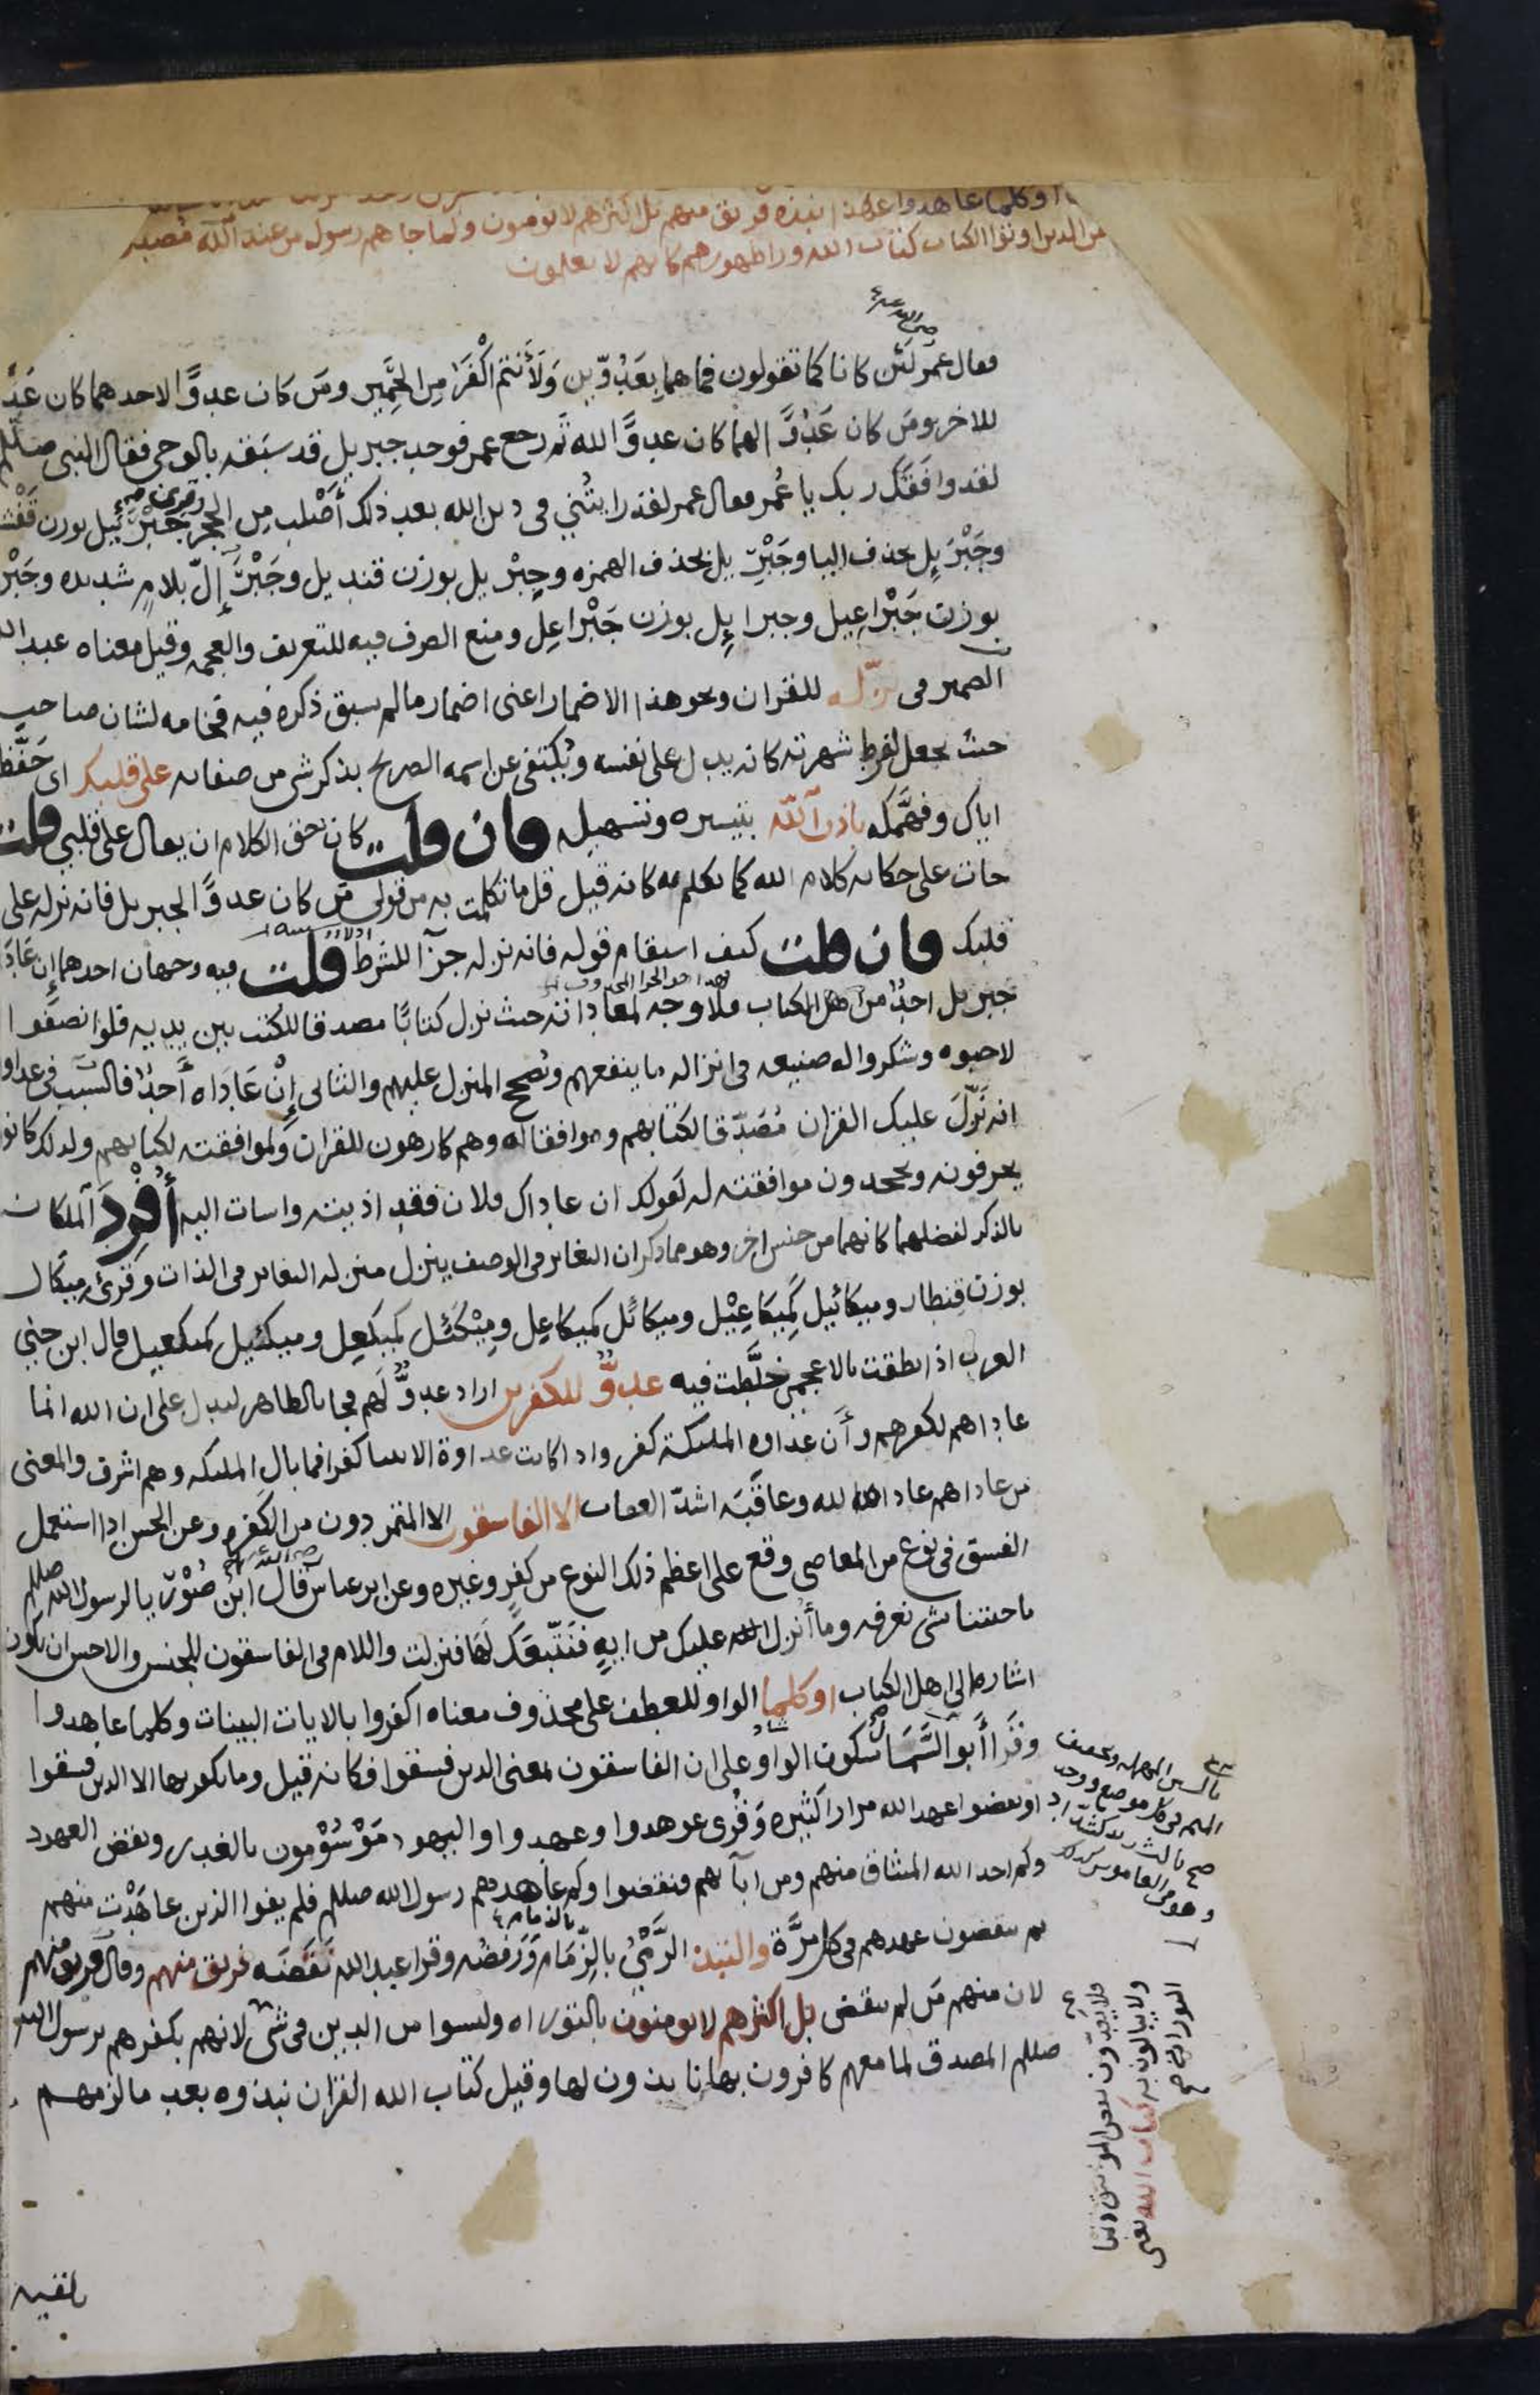 اوكلما عاهدوا عهدا نبذه فريق منهم بل اكثرهم لا يومنون ولما جاهم رسول من عند الله مصدق
من الدين اوتوا الكتاب كتاب الله ورا ظهورهم كانهم لا يعلمون
فقال عمر لَئن كانا كما تقولون فما هما بِعَدُوّين وَلَأَنتم اكْفَرُ مِن الحَمِير ومَن كان عدوًّا لاحدهما كان عَدًّ
للاخر ومَن كان عَدُوًّا لهما كان عدوًّا لله ثم رجع عمر فوجد جبريل قد سَبَقه بالوحي فقال النبى صللم
لقد وافقَك ربك يا عُمر فقال عمر لقد رايتُني في دين الله بعد ذلك أَصْلب مِن الحجر وقرئ جَبْرَئيل بوزن قَفْش
وجَبْرَئِل بحذف اليا وجَبْرِيل بحذف الهمزه وجِبْرِيل بوزن قنديل وجَبْرَإِلّ بلامٍ شديده وجَبْر
بوزن جَبْراعِيل وجبرايِل بوزن جَبْراعِل ومنع الصرف فيه للتعريف والعجمه وقيل معناه عبد ال
الضمير في نزّله للقران ونحو هذا الاضمار اعني اضمار ما لم يسبق ذكره فيه فخامه لشان صاحب
حيث يجعل لفرط شهرته كانه يدل على نفسه ويُكتفى عن اسمه الصريح بذكر شى من صفاته على قلبك اى حَفَّظ
اياك وفهَّمَكه باذن الله بتيسيره وتسهيله فان قلت كان حق الكلام ان يقال على قلبي قلت
جات على حكايه كلام الله كما تكلم به كانه قيل قل ما تكلمت به من قولي مَن كان عدوًّا لجبريل فانه نزله على
قلبك فان قلت كيف استقام قوله فانه نزله جزآ للشرط قلت فيه وجهان احدهما إن عَادَ
جبريل احدٌ من اهل الكتاب فلا وجه لمعاداته حيث نزل كتابًا مصدقا للكتب بين يديه فلو انصفوا
لاحبوه وشكروا له صنيعه في انزاله ما ينفعهم ويُصحح المنزل عليهم والثاني إِنْ عَادَاه أَحدٌ فالسبب في عداو
انه نَزّلَ عليك القران مُصَدّقا لكتابهم وموافقا له وهم كارهون للقران ولموافقته لكتابهم ولذلك كانو
يحرفونه ويجحدون موافقته له كقولك ان عاداك فلان فقد اذيته واسات اليه أُفْرِدَ الملكان
بالذكر لفضلهما كانهما من جنس اخر وهو مما ذكر ان التغاير في الوصف ينزل منزله التغاير في الذات وقرئ ميكال
بوزن قِنطار وميكائيل كَمِيكاعِيْل وميكائل كميكاعِل ومِيْكَئل كميكَعِل وميكئيل كميكعيل قال ابن جني
العرب اذا نطقت بالاعجمي خَلَّطت فيه عدوٌّ للكفرين اراد عدوٌّ لَهم فجا بالظاهر ليدل على ان الله انما
عاداهم لكفرهم وأَن عَداوه المليكة كفر واذا كانت عداوة الانبيا كفرا فما بال المليكه وهم اشرف والمعنى
من عاداهم عاداه الله وعاقَبَه اشدّ العقاب الا الفاسقون الا المتمردون من الكَفره وعن الحسن اذا استعمل
الفسق في نوع من المعاصى وقع على اعظم ذلك النوع من كفرٍ وغيره وعن ابن عباس قال ابن صُوْرِيا لرسول الله صللم
ما جئتنا بشى نعرفه وما أُنزل الله عليك من ايةٍ فنَتّبعَكَ لَها فنزلت واللام في الفاسقون للجنس والاحسن ان يكون
اشاره الى اهل الكتاب اوكلما الواو للعطف على محذوف معناه اكفروا بالايات البينات وكلما عاهدوا
وقَرا أَبو السَّمَال بسكون الواو على ان الفاسقون بمعنى الدين فسقوا فكانه قيل وما يكفر بها الا الدين فسقوا
او نقضوا عهد الله مرارا كثيره وَقُرئ عوهدوا وعهدوا واليهود مَوْسُوْمون بالغدر ونقض العهود
وكم اخذ الله الميثاق منهم ومن ابآيهم فنقضوا وكم عاهدهم رسول الله صللم فلم يفوا الذين عاهَدْت منهم
ثم ينقضون عهدهم في كل مرَّة والنبذ الرَّمْيُ بالِذّمَام وَرَفضُه وقرا عبد الله نَقَضَه فريق منهم وقال فريق منهم
لان منهم مَن لم ينقض بل اكثرهم لا يومنون بالتوراه وليسوا من الدين في شي لانهم بكفرهم برسول الله
صللم المصدق لما معهم كافرون بها نابذون لها وقيل كتاب الله القران نبذوه بعد ما لزمهم
بالسين المهمله وتخفيف
الميم في كل موضع
وهو في القاموس كذلك
فلا يَعُدّون نقض المواثيق ذنبا
ولا يبالون به كتاب الله يعنى
التوراه صح
تلقيه